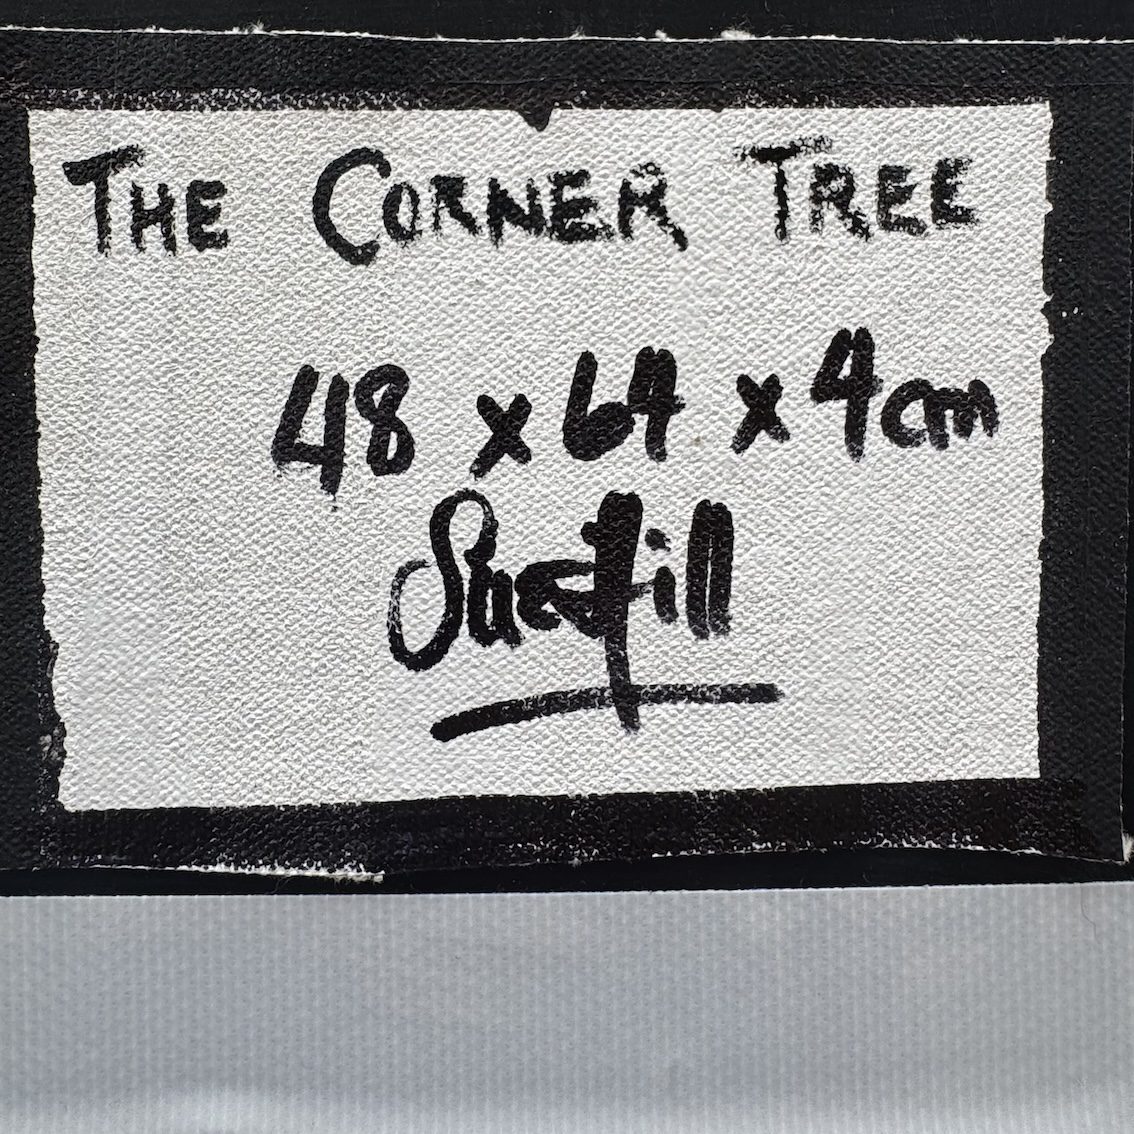 THE CORNER TREE
48 x 64 x 4cm